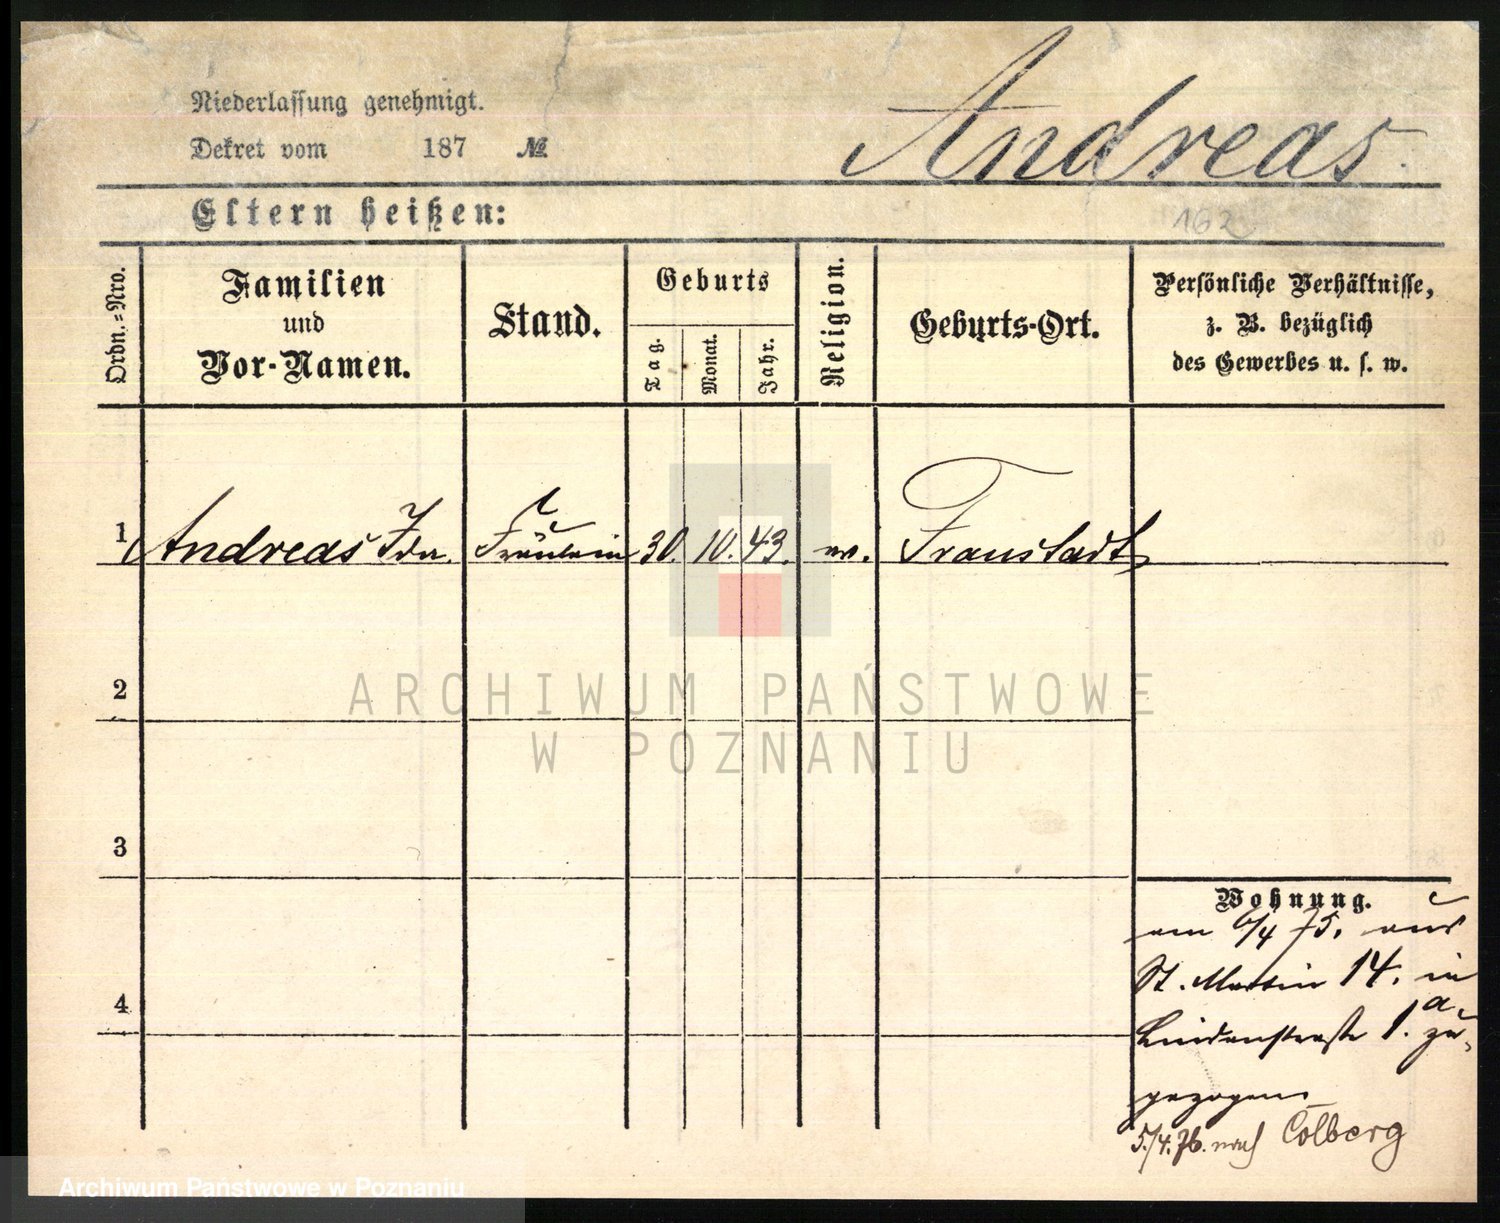 Niederlassung genehmigt.
Dekret vom 187 №
Andreas.
Eltern heißen:
162
Ordn.-Nro.
Familien
und
Vor-Namen.
Stand.
Geburts
Tag.
Monat.
Jahr.
Religion.
Geburts-Ort.
Persönliche Verhältnisse,
z. B. bezüglich
des Gewerbes u. s. w.
1 Andreas Ida. Fräulein 30. 10. 43. ev. Fraustadt
2
3
4
Wohnung.
am 6/4 75. aus
St. Martin 14. in
Lindenstraße 1.a zu-
gezogen
5./4.76. nach Colberg
ARCHIWUM PAŃSTWOWE
W POZNANIU
Archiwum Państwowe w Poznaniu